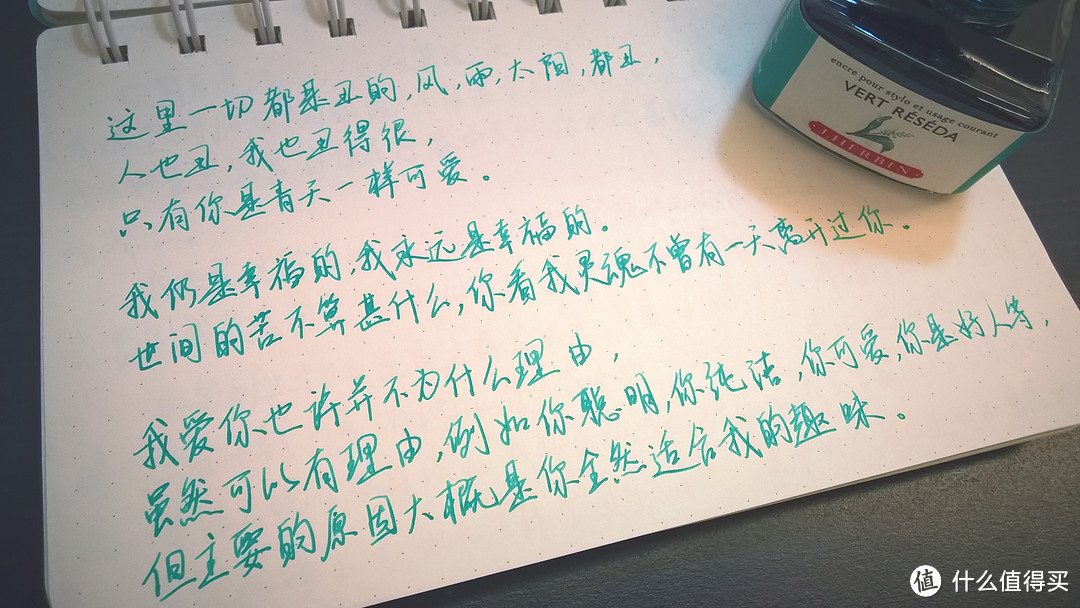 这里一切都是丑的,风,雨,太阳,都丑,
人也丑,我也丑得很,
只有你是青天一样可爱。
我仍是幸福的,我永远是幸福的。
世间的苦不算甚什么,你看我灵魂不曾有一天离开过你。
我爱你也许并不为什么理由,
虽然可以有理由,例如你聪明,你纯洁,你可爱,你是好人等,
但主要的原因大概是你全然适合我的趣味。
encre pour stylo et usage courant
VERT RÉSÉDA
J.HERBIN
值 什么值得买